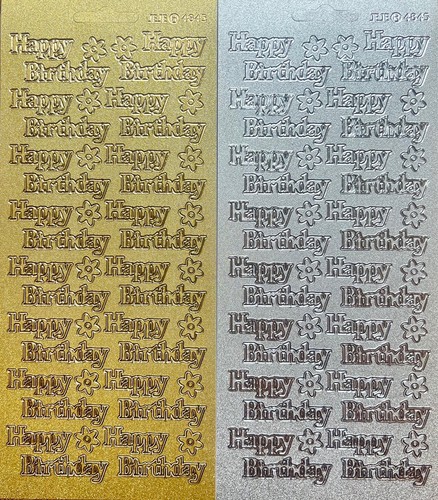 4845
Happy Happy
Birthday Birthday
Happy Happy
Birthday Birthday
Happy Happy
Birthday Birthday
Happy Happy
Birthday Birthday
Happy Happy
Birthday Birthday
Happy Happy
Birthday Birthday
Happy Happy
Birthday Birthday
Happy Happy
Birthday Birthday
4845
Happy Happy
Birthday Birthday
Happy Happy
Birthday Birthday
Happy Happy
Birthday Birthday
Happy Happy
Birthday Birthday
Happy Happy
Birthday Birthday
Happy Happy
Birthday Birthday
Happy Happy
Birthday Birthday
Happy Happy
Birthday Birthday